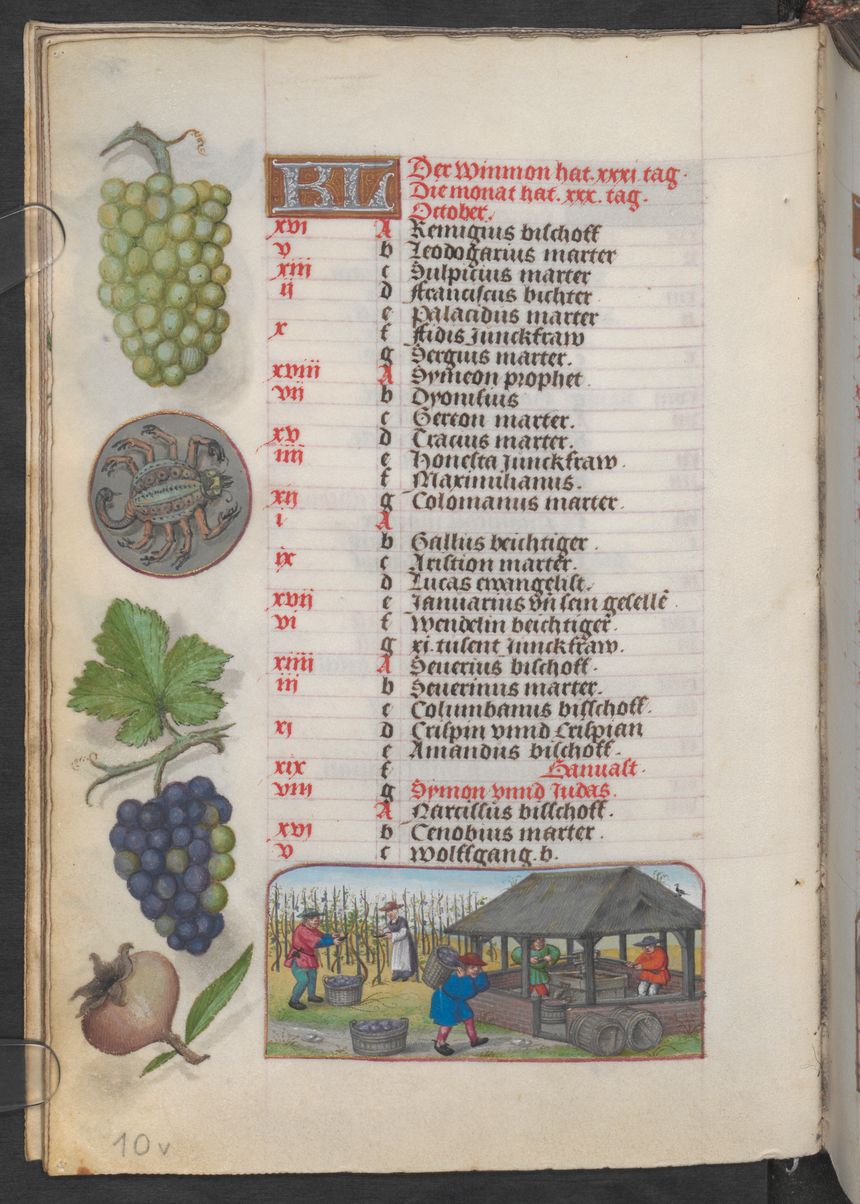 KL Der Winmon hat. xxxi. tag.
Die monat hat. xxx. tag.
October.
xvi A Remigius bischoff
v b Leodogarius marter
xiii c Sulpicius marter
ij d Franciscus bichter
e Palacidus marter
x f Fidis Junckfraw
g Sergius marter.
xviii A Symeon prophet
vij b Dyonisius
c Gereon marter.
xv d Tracius marter.
iiii e Honesta Junckfraw.
f Maximilianus.
xij g Colomanus marter.
i A
b Gallus beichtiger.
ix c Aristion marter.
d Lucas ewangelist.
xvij e Januarius vñ sein gesellē
vi f Wendelin beichtiger.
g xi. tusent Junckfraw.
xiiii A Seuerius bischoff.
iij b Seuerinus marter.
c Columbanus bisschoff.
xj d Crispin vnnd Crispian
e Amandus bischoff.
xix f Banuast.
viii g Symon vnnd Judas.
A Narcissus bisschoff.
xvj b Cenobius marter.
v c Wolffgang. b.
10v